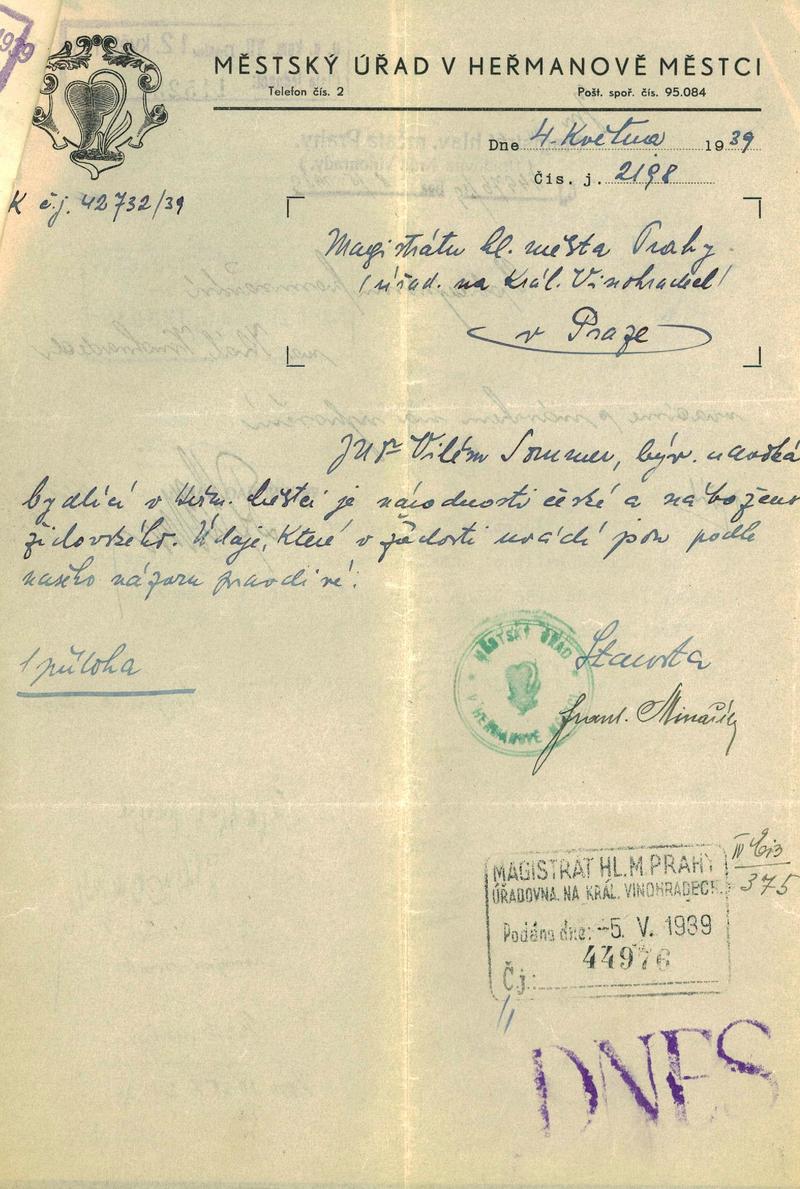 1939
MĚSTSKÝ ÚŘAD V HEŘMANOVĚ MĚSTCI
Telefon čís. 2 Pošt. spoř. čís. 95.084
Dne 4. Května 1939
Čís. j. 2198
K č.j. 42732/39
Magistrátu hl. města Prahy
(úřad. na Král. Vinohradech)
v Praze
JUDr Vilém Sommer, býv.
bydlící v Heřm. Městci je národnosti české a nábožens
židovského. Údaje, které v žádosti uvádí jsou podle
našeho názoru pravdivé.
1 příloha
MĚSTSKÝ ÚŘAD
V HEŘMANOVĚ
Starosta
Frant.
MAGISTRÁT HL. M. PRAHY
ÚŘADOVNA NA KRÁL. VINOHRADECH
Podáno dne: -5. V. 1939
44976
Čj.
IV
375
DNES